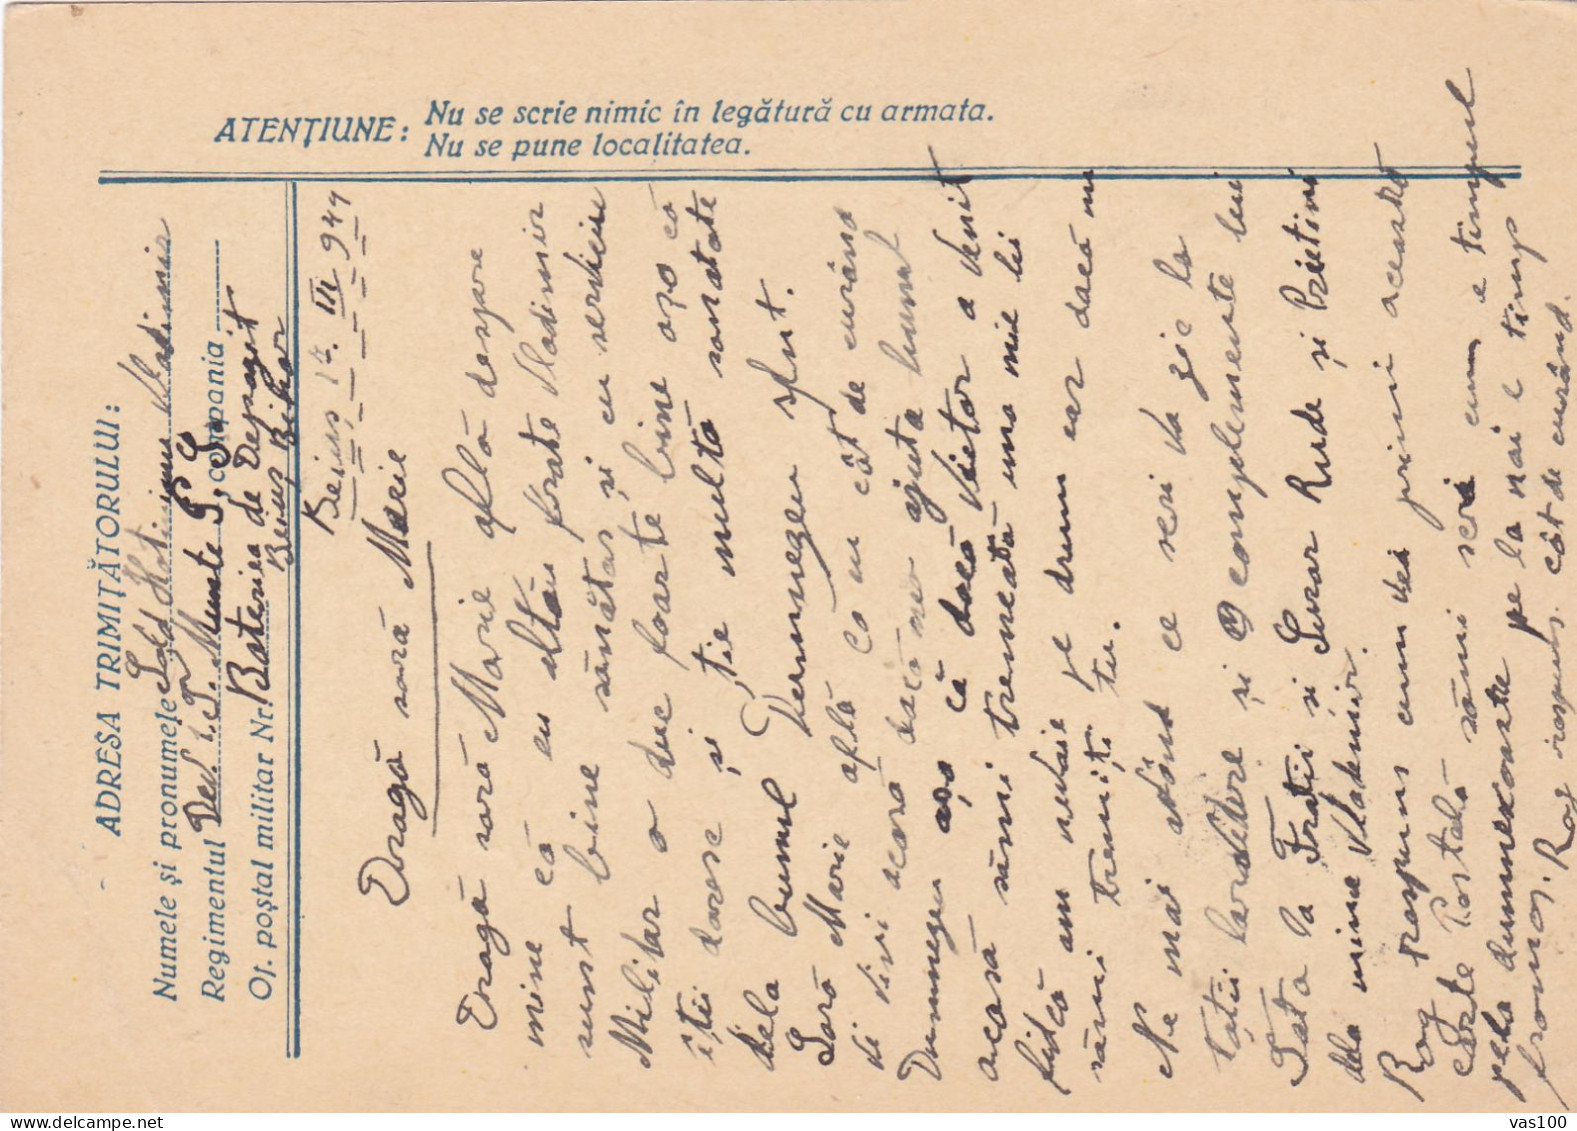 ATENȚIUNE: Nu se scrie nimic în legătură cu armata.
Nu se pune localitatea.
ADRESA TRIMIȚĂTORULUI:
Numele și pronumele Sold Vladimir
Regimentul Det. Munte compania
Of. poștal militar Nr. Bateria de Depozit
Beius Bihor
Beius 14. III 944
Dragă soră Marie
Dragă soră Marie află despre
mine că eu al tău frate Vladimir
sunt bine sănătos și cu serviciu
Militar o duc foarte bine așa că
îți doresc și ție multă sănătate
dela bunul Dumnezeu sfnt.
Soră Marie află că eu cât de curând
oi veni acasă dacă mo ajuta bunul
Dumnezeu așa că dacă Victor a venit
acasă sămi trimeată una mie lei
fiică am nevoie pe drum iar dacă nu
sămi trimiți tu.
Ne mai având ce scri va zic la
toții la revedere și complemente lui
Tata la Frații si Surori Rude și Prietini
dela mine Vladimir.
Rog răspuns cum vei primi această
carte Postală sămi scri cum e timpul
pela dumneavoastre pe la noi e timp
frumos. Rog răspuns cât de curând.
vas100